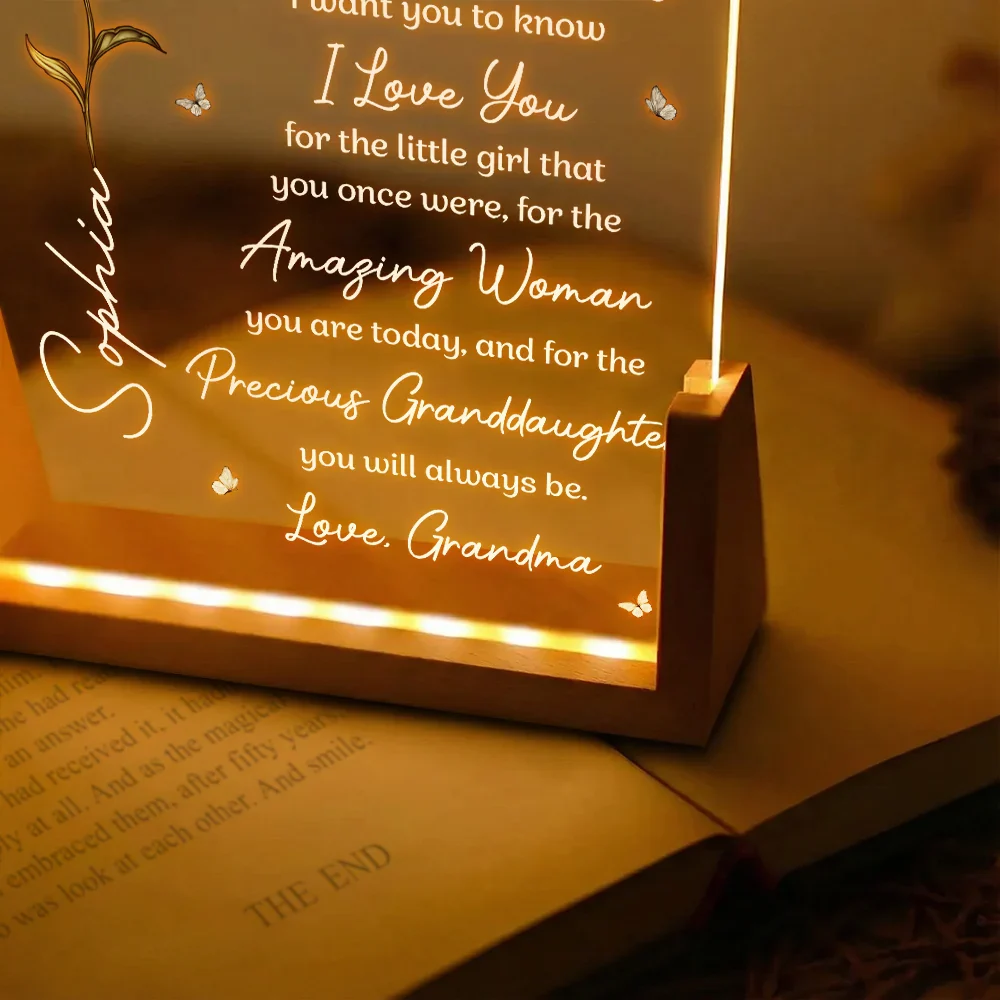 I want you to know
I Love You
for the little girl that
you once were, for the
Amazing Woman
you are today, and for the
Precious Granddaughte
you will always be.
Love, Grandma
Sophia
he had
an answer.
had received it, it had
at all. And as the magical
embraced them, after fifty years
was look at each other. And smile.
THE END